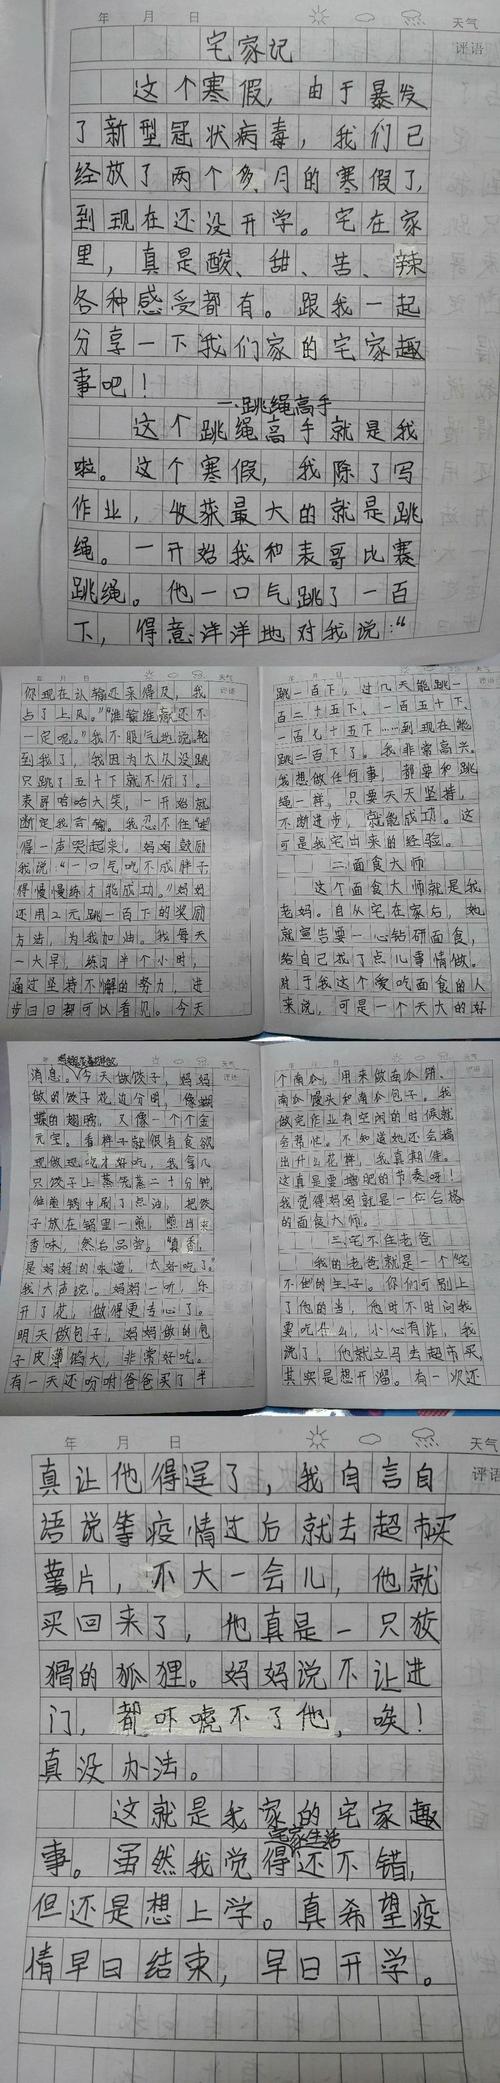 年 月 日 天气
评语
宅家记
这个寒假，由于暴发
了新型冠状病毒，我们已
经放了两个多月的寒假了，
到现在还没开学。宅在家
里，真是酸、甜、苦、辣
各种感受都有。跟我一起
分享一下我们家的宅家趣
事吧！
一.跳绳高手
这个跳绳高手就是我
啦。这个寒假，我除了写
作业，收获最大的就是跳
绳。一开始我和表哥比赛
跳绳。他一口气跳了一百
下，得意洋洋地对我说：“
年 月 日 天气
评语
你现在认输还来得及，我
占了上风。”“谁输谁赢还不
一定呢。”我不服气地说。轮
到我了，我因为太久没跳
只跳了五十下就不行了。
表哥哈哈大笑，一开始就
断定我会输。我忍不住“哇”
得一声哭起来。妈妈鼓励
我说：“一口气吃不成胖子
得慢慢练才能成功。”妈妈
还用2元跳一百下的奖励
方法，为我加油。我每天
一大早，练习半个小时，
通过坚持不懈的努力，进
步日日都可以看见。今天
年 月 日 天气
评语
跳一百下，过几天能跳一
百二十五下、一百五十下、
一百七十五下……到现在能
跳二百下了。我非常高兴。
我想做任何事，都要和跳
绳一样，只要天天坚持，
不断进步，就能成功。这
可是我宅出来的经验。
二.面食大师
这个面食大师就是我
老妈。自从宅在家后，她
就宣告要一心钻研面食，
给自己找了点儿事情做。
对于我这个爱吃面食的人
来说，可是一个天大的好
天气
评语
消息。今天做饺子，妈妈
做的饺子花边分明，像蝴
蝶的翅膀，又像一个个金
元宝。看样子就很有食欲
现做现吃才好吃，我拿几
只饺子上蒸笼蒸二十分钟，
锅中刷了点油，把饺
子放在锅里一煎，煎出来
香味，然后品尝。“真香，
是妈妈的味道，太好吃了。”
我大声说。妈妈一听，乐
开了花，做得更专心了。
明天做包子，妈妈做的包
子皮薄馅大，非常好吃。
有一天还吩咐爸爸买了半
天气
评语
个南瓜，用来做南瓜饼、
南瓜馒头和南瓜包子。我
做完作业有空闲的时候就
会帮忙。不知道她还会搞
出什么花样，我真期待。
这真是要增肥的节奏呀！
我觉得妈妈就是一位合格
的面食大师。
三.宅不住老爸
我的老爸就是一个“宅
不住”的主子。你们可别上
了他的当，他时不时问我
要吃什么，小心有诈，我
说了，他就立马去超市买，
其实是想开溜。有一次还
年 月 日 天气
评语
真让他得逞了，我自言自
语说等疫情过后就去超市买
薯片，不大一会儿，他就
买回来了，他真是一只狡
猾的狐狸。妈妈说不让进
门，都吓唬不了他，唉！
真没办法。
这就是我家的宅家趣
宅家生活
事。虽然我觉得还不错，
但还是想上学。真希望疫
情早日结束，早日开学。